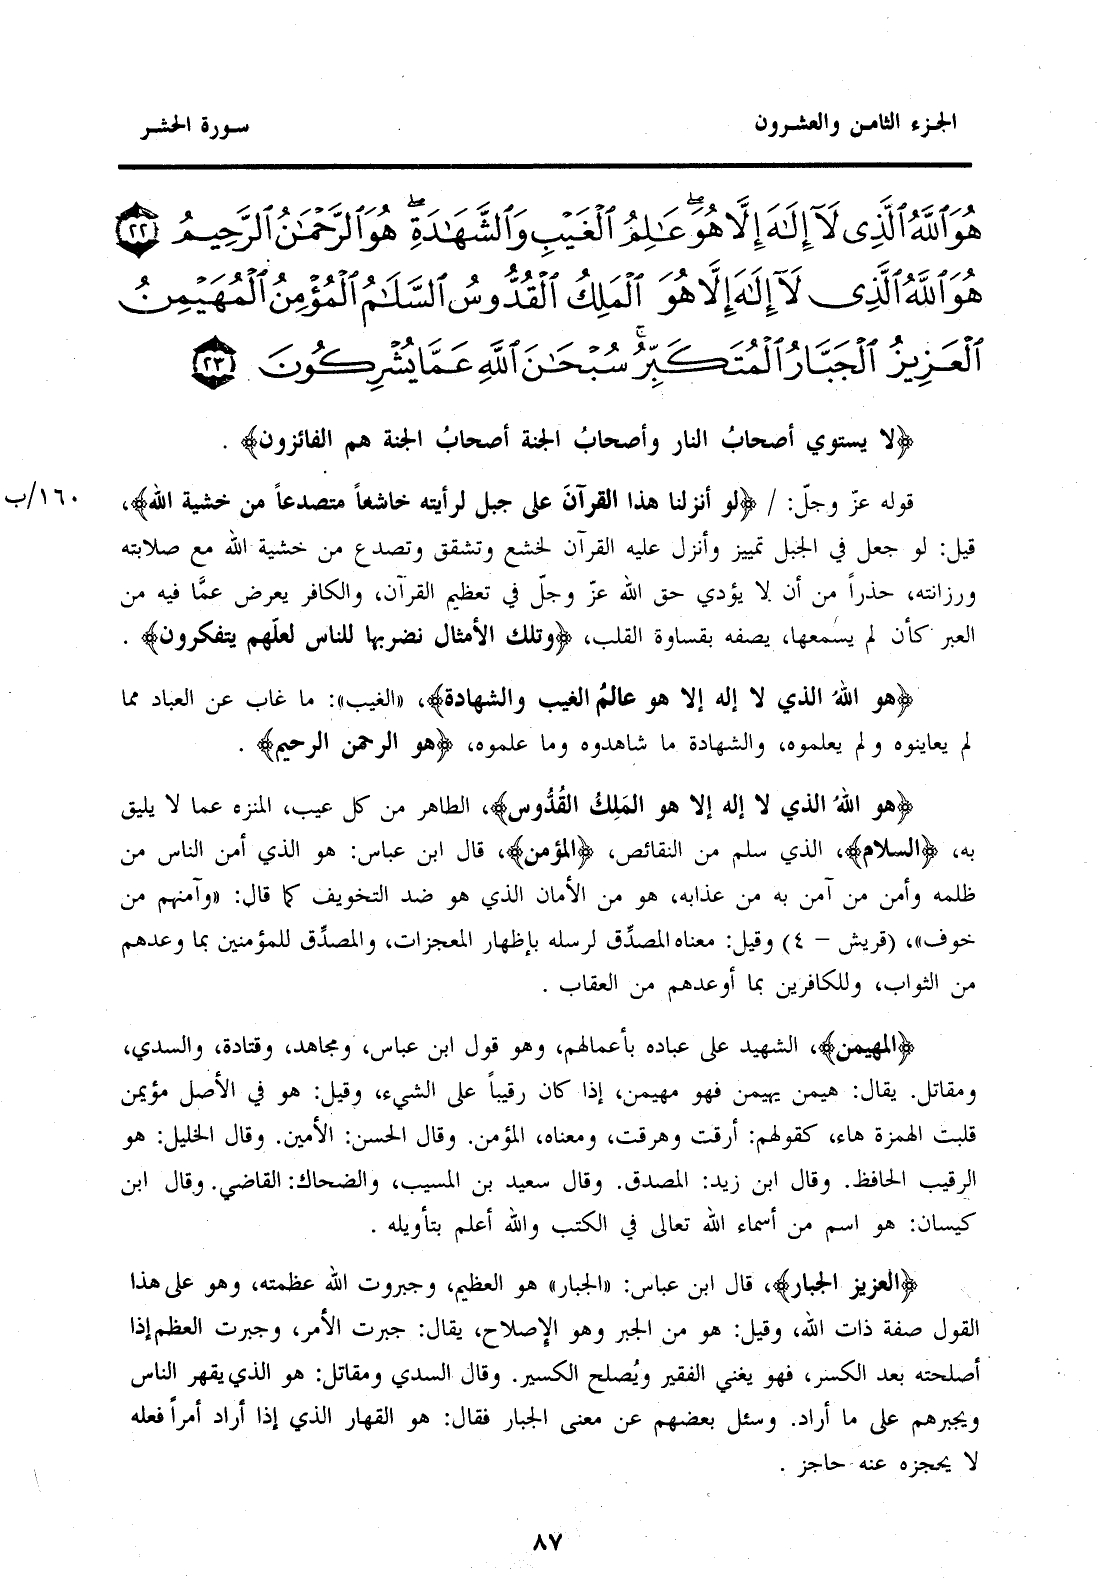 الجزء الثامن والعشرون
سورة الحشر
هُوَ ٱللَّهُ ٱلَّذِى لَآ إِلَٰهَ إِلَّا هُوَۖ عَٰلِمُ ٱلْغَيْبِ وَٱلشَّهَٰدَةِۖ هُوَ ٱلرَّحْمَٰنُ ٱلرَّحِيمُ ٢٢
هُوَ ٱللَّهُ ٱلَّذِى لَآ إِلَٰهَ إِلَّا هُوَ ٱلْمَلِكُ ٱلْقُدُّوسُ ٱلسَّلَٰمُ ٱلْمُؤْمِنُ ٱلْمُهَيْمِنُ
ٱلْعَزِيزُ ٱلْجَبَّارُ ٱلْمُتَكَبِّرُۚ سُبْحَٰنَ ٱللَّهِ عَمَّا يُشْرِكُونَ ٢٣
﴿لا يستوي أصحابُ النار وأصحابُ الجنة أصحابُ الجنة هم الفائزون﴾ .
قوله عزّ وجلّ: / ﴿لو أنزلنا هذا القرآنَ على جبل لرأيته خاشعاً متصدعاً من خشية الله﴾،
١٦٠/ب
قيل: لو جعل في الجبل تمييز وأنزل عليه القرآن لخشع وتشقق وتصدع من خشية الله مع صلابته
ورزانته، حذراً من أن لا يؤدي حق الله عزّ وجلّ في تعظيم القرآن، والكافر يعرض عمَّا فيه من
العبر كأن لم يسمعها، يصفه بقساوة القلب، ﴿وتلك الأمثال نضربها للناس لعلّهم يتفكرون﴾ .
﴿هو اللهُ الذي لا إله إلا هو عالمُ الغيب والشهادة﴾، «الغيب»: ما غاب عن العباد مما
لم يعاينوه ولم يعلموه، والشهادة ما شاهدوه وما علموه، ﴿هو الرحمن الرحيم﴾ .
﴿هو اللهُ الذي لا إله إلا هو المَلِكُ القُدُّوس﴾، الطاهر من كل عيب، المنزه عما لا يليق
به، ﴿السلام﴾، الذي سلم من النقائص، ﴿المؤمن﴾، قال ابن عباس: هو الذي أمن الناس من
ظلمه وأمن من آمن به من عذابه، هو من الأمان الذي هو ضد التخويف كما قال: «وآمنهم من
خوف»، (قريش – ٤) وقيل: معناه المصدِّق لرسله بإظهار المعجزات، والمصدِّق للمؤمنين بما وعدهم
من الثواب، وللكافرين بما أوعدهم من العقاب .
﴿المهيمن﴾، الشهيد على عباده بأعمالهم، وهو قول ابن عباس، ومجاهد، وقتادة، والسدي،
ومقاتل. يقال: هيمن يهيمن فهو مهيمن، إذا كان رقيباً على الشيء، وقيل: هو في الأصل مؤيمن
قلبت الهمزة هاء، كقولهم: أرقت وهرقت، ومعناه، المؤمن. وقال الحسن: الأمين. وقال الخليل: هو
الرقيب الحافظ. وقال ابن زيد: المصدق. وقال سعيد بن المسيب، والضحاك: القاضي. وقال ابن
كيسان: هو اسم من أسماء الله تعالى في الكتب والله أعلم بتأويله .
﴿العزيز الجبار﴾، قال ابن عباس: «الجبار» هو العظيم، وجبروت الله عظمته، وهو على هذا
القول صفة ذات الله، وقيل: هو من الجبر وهو الإصلاح، يقال: جبرت الأمر، وجبرت العظم إذا
أصلحته بعد الكسر، فهو يغني الفقير ويُصلح الكسير. وقال السدي ومقاتل: هو الذي يقهر الناس
ويجبرهم على ما أراد. وسئل بعضهم عن معنى الجبار فقال: هو القهار الذي إذا أراد أمراً فعله
لا يحجزه عنه حاجز .
٨٧